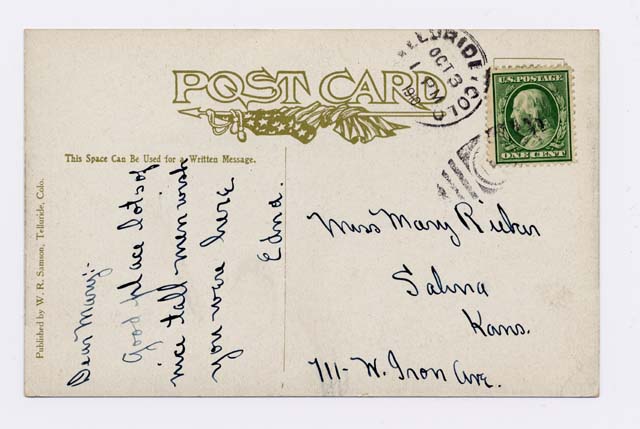 POST CARD
TELLURIDE, COLO
OCT 3
1 PM
U.S. POSTAGE
ONE CENT
This Space Can Be Used for a Written Message.
Published by W. R. Samson, Telluride, Colo.
Dear Mary;-
Good place lots of
nice tall men wish
you were here
Edna.
Miss Mary
Salina
Kans.
711-W. Iron Ave.